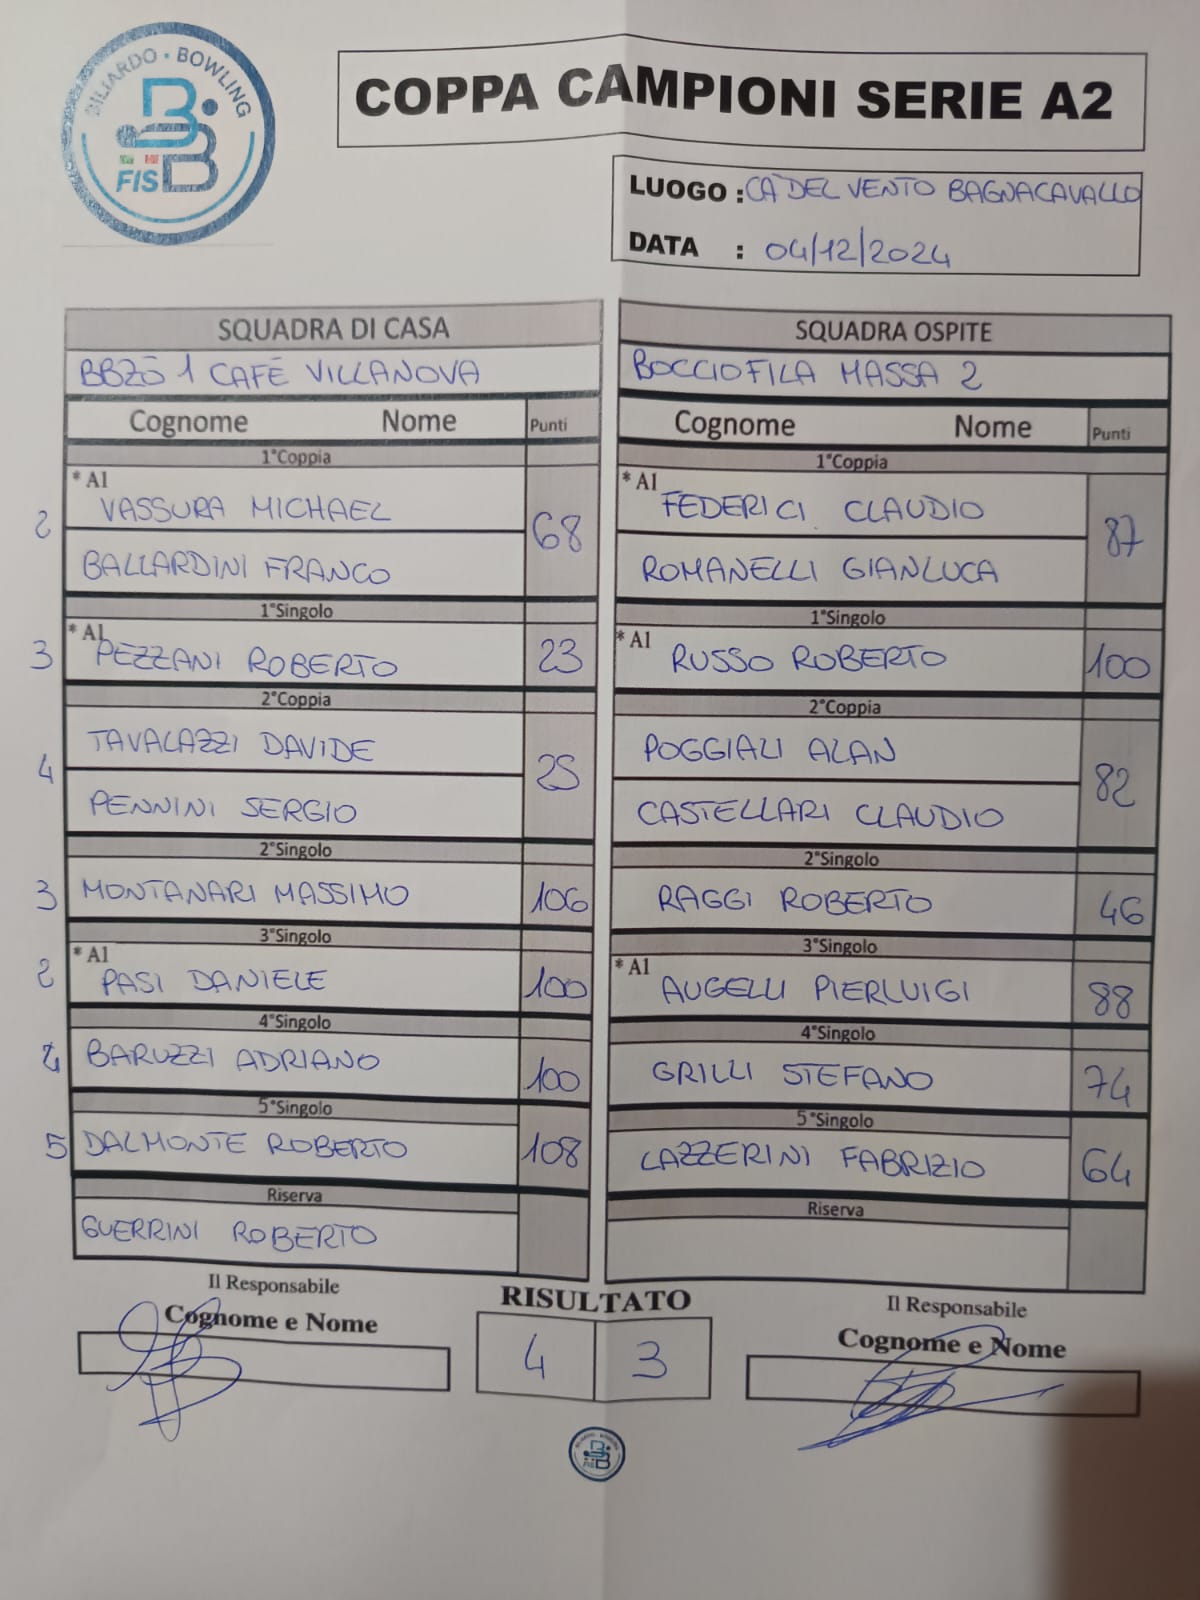 BILIARDO • BOWLING
FISBB
COPPA CAMPIONI SERIE A2
LUOGO : CA' DEL VENTO BAGNACAVALLO
DATA : 04/12/2024
SQUADRA DI CASA
BBZŌ 1 CAFÈ VILLANOVA
Cognome Nome Punti
1°Coppia
* A1
2 VASSURA MICHAEL 68
BALLARDINI FRANCO
1°Singolo
* A1
3 PEZZANI ROBERTO 23
2°Coppia
4 TAVALAZZI DAVIDE 25
PENNINI SERGIO
2°Singolo
3 MONTANARI MASSIMO 106
3°Singolo
* A1
2 PASI DANIELE 100
4°Singolo
BARUZZI ADRIANO 100
5°Singolo
5 DALMONTE ROBERTO 108
Riserva
GUERRINI ROBERTO
Il Responsabile
Cognome e Nome
SQUADRA OSPITE
BOCCIOFILA MASSA 2
Cognome Nome Punti
1°Coppia
* A1
FEDERICI CLAUDIO 87
ROMANELLI GIANLUCA
1°Singolo
* A1
RUSSO ROBERTO 100
2°Coppia
POGGIALI ALAN 82
CASTELLARI CLAUDIO
2°Singolo
RAGGI ROBERTO 46
3°Singolo
* A1
AUGELLI PIERLUIGI 88
4°Singolo
GRILLI STEFANO 74
5°Singolo
LAZZERINI FABRIZIO 64
Riserva
RISULTATO
4 3
Il Responsabile
Cognome e Nome